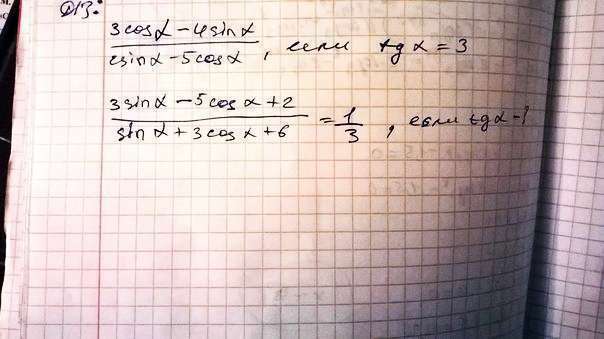 Д/З:
3cosα - 4sinα / 2sinα - 5cosα, если tgα = 3
3sinα - 5cosα + 2 / sinα + 3cosα + 6 = 1/3, если tgα - ?